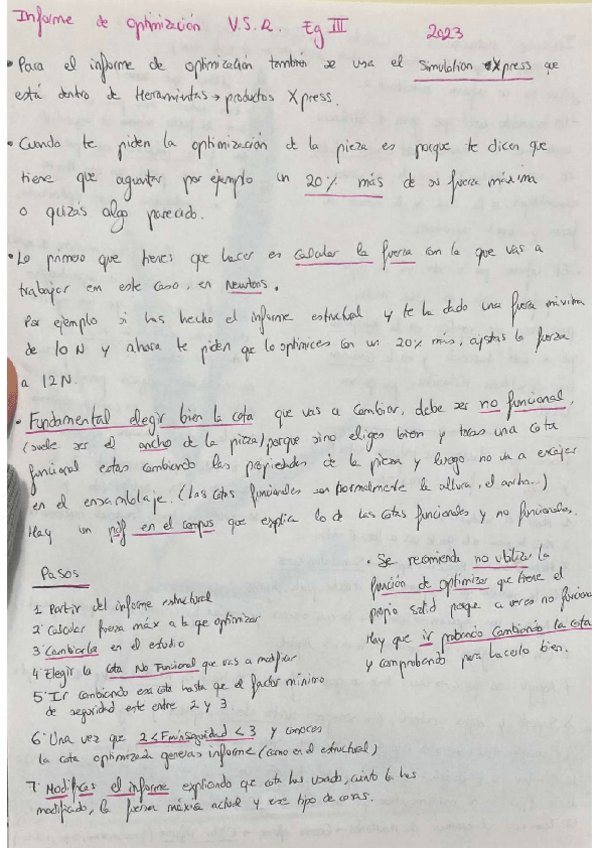 Informe de optimización V.S.R. Eg III 2023
• Para el informe de optimización también se usa el Simulation Xpress que
está dentro de Herramientas → productos Xpress.
• Cuando te piden la optimización de la pieza es porque te dicen que
tiene que aguantar por ejemplo un 20% más de su fuerza máxima
o quizás algo parecido.
• Lo primero que tienes que hacer es calcular la fuerza con la que vas a
trabajar em este caso, en Newtons.
Por ejemplo si has hecho el informe estructural y te ha dado una fuerza máxima
de 10 N y ahora te piden que lo optimices con un 20% más, ajustas la fuerza
a 12N.
• Fundamental elegir bien la cota que vas a cambiar, debe ser no funcional,
(suele ser el ancho de la pieza) porque sino eliges bien y tocas una cota
funcional estas cambiando las propiedades de la pieza y luego no va a encajar
en el ensamblaje. (Las cotas funcionales son normalmente la altura, el ancho...)
Hay un pdf en el campus que explica lo de las cotas funcionales y no funcionales.
Pasos
1. Partir del informe estructural
2. Calcular fuerza máx a la que optimizar
3. Cambiarla en el estudio
4. Elegir la cota No Funcional que vas a modificar
5. Ir cambiando esa cota hasta que el factor mínimo
de seguridad este entre 2 y 3.
6. Una vez que 2 < Fminseguridad < 3 y conoces
la cota optimizada generas informe (como en el estructural)
7. Modificas el informe explicando que cota has usado, cuánto la has
modificado, la fuerza máxima actual y ese tipo de cosas.
• Se recomienda no utilizar la
función de optimizar que tiene el
propio solid porque a veces no funciona
Hay que ir probando cambiando la cota
y comprobando para hacerlo bien.